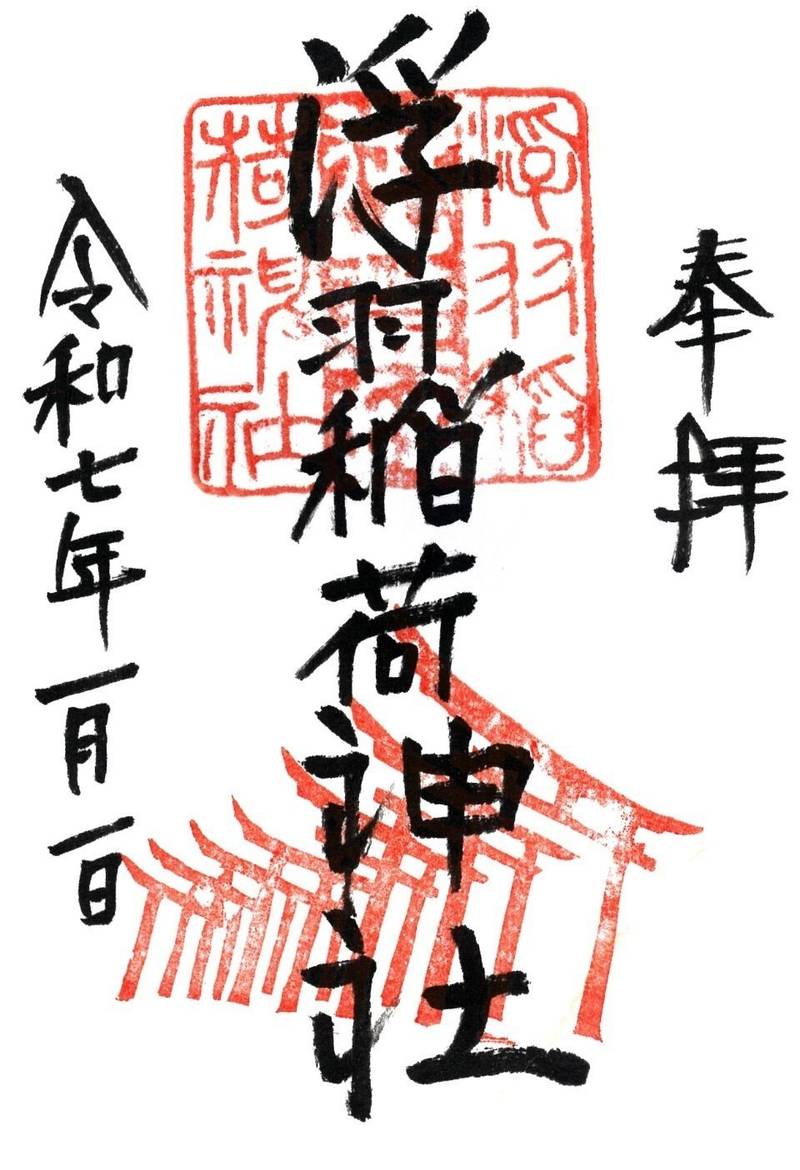 奉拝
浮羽稲荷神社
令和七年一月一日
浮羽稲
荷神社